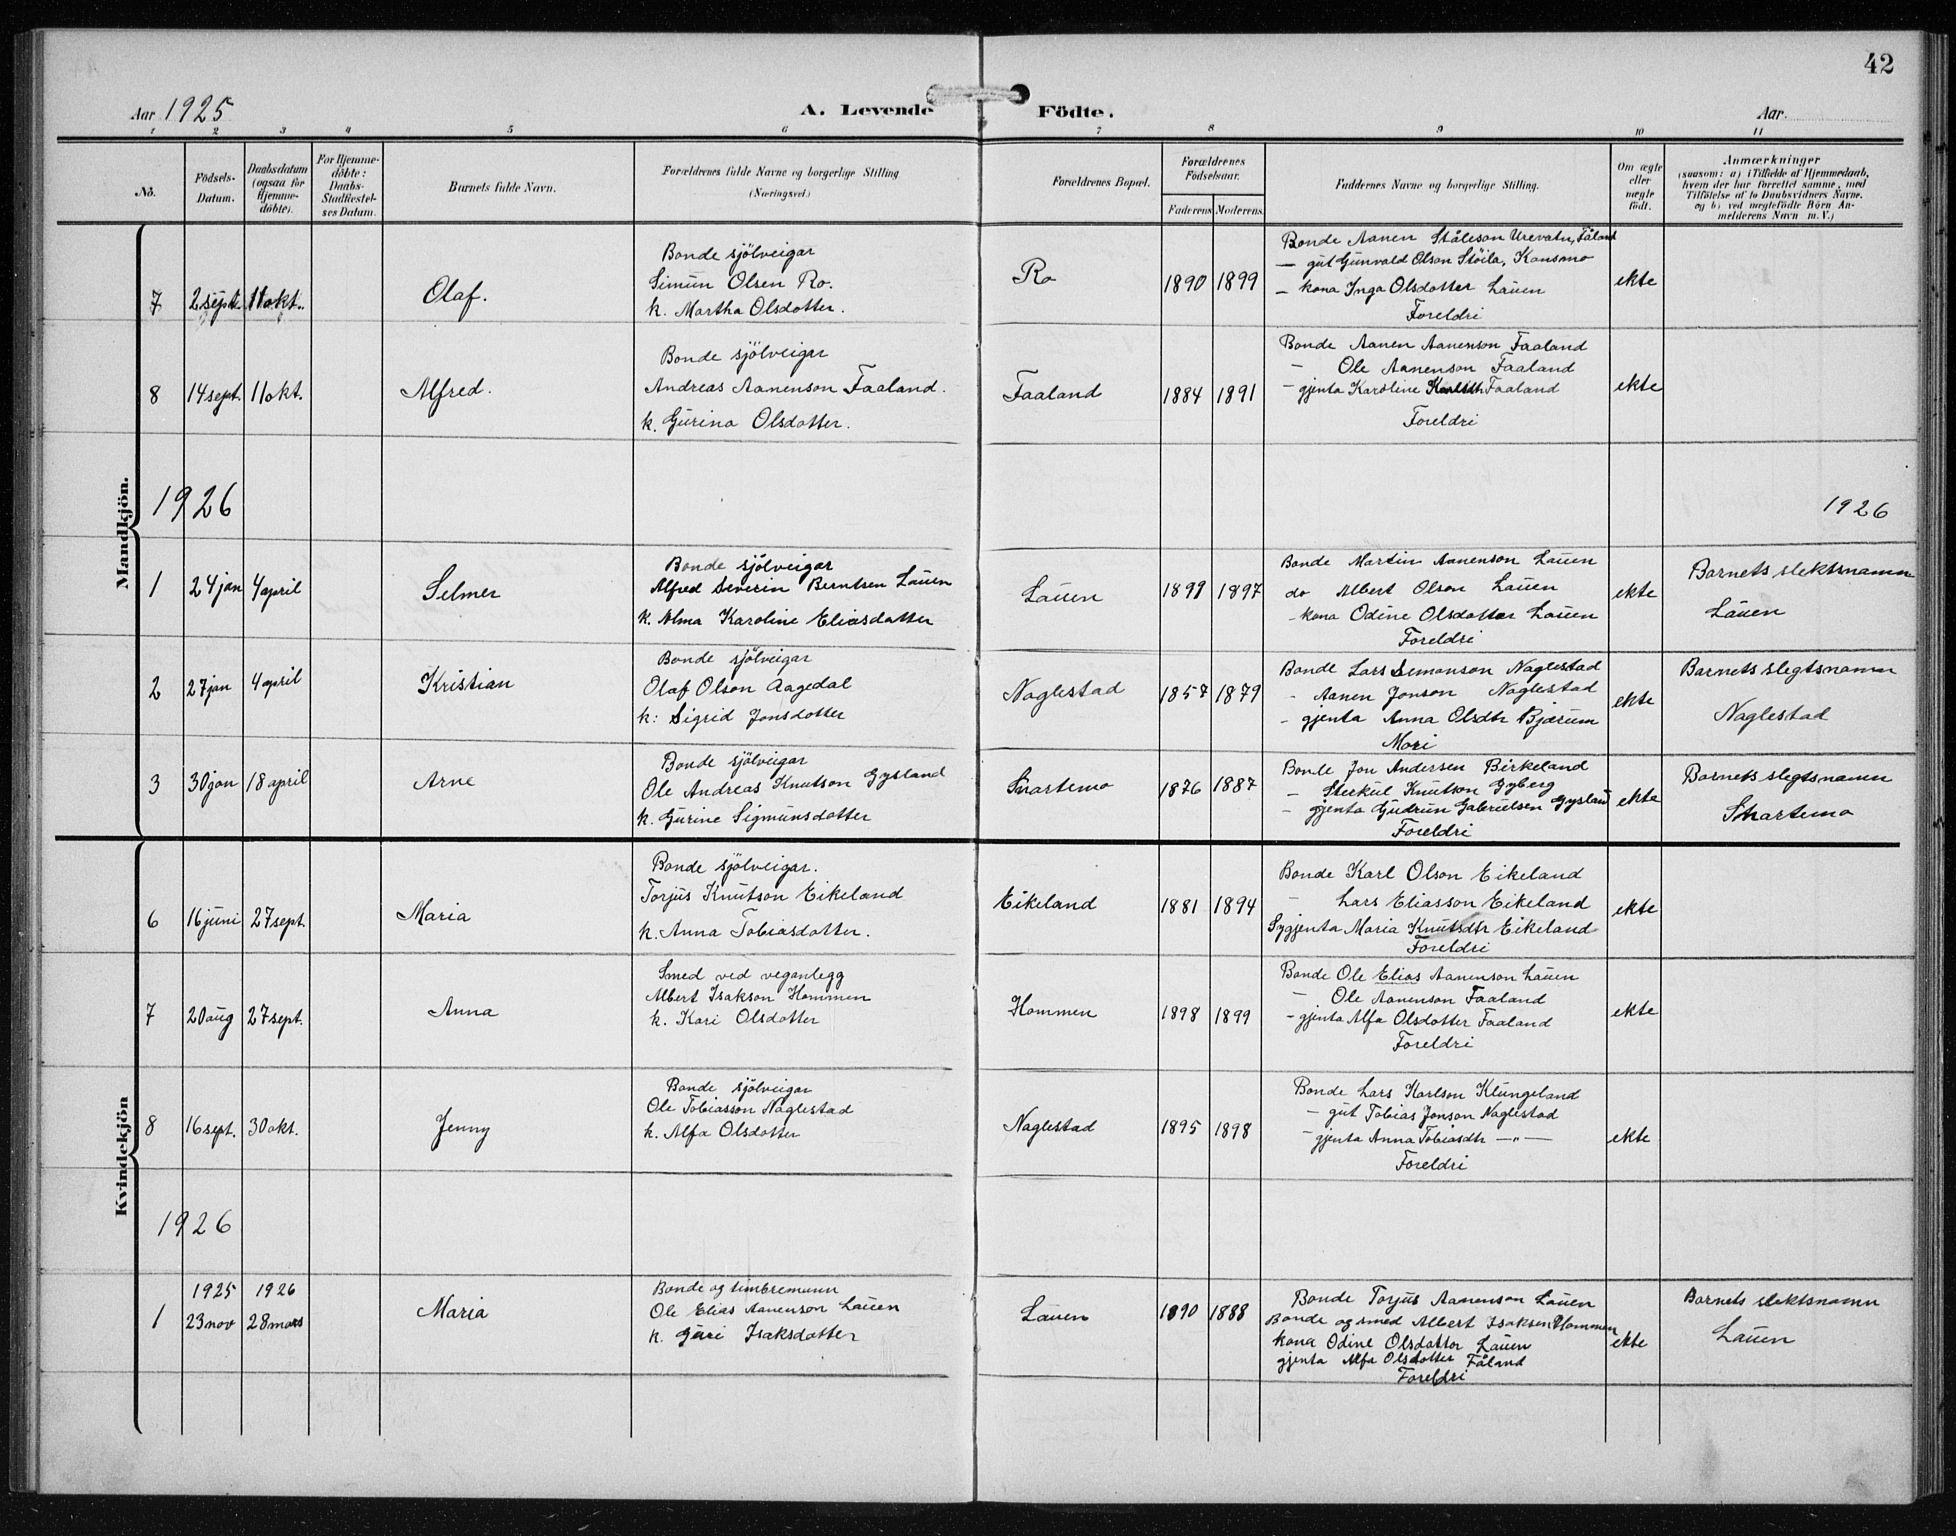 42
Aar 1925
A. Levende Födte.
Aar
1 2 3 4 5 6 7 8 9 10 11
No.
Födsels-
Datum.
Daabsdatum
(ogsaa for
Hjemme-
döbte).
For Hjemme-
döbte:
Daabs-
Stadfæstel-
ses Datum.
Barnets fulde Navn.
Forældrenes fulde Navne og borgerlige Stilling
(Næringsvei.)
Forældrenes Bopæl.
Forældrenes
Födselsaar.
Faderens Moderens
Faddernes Navne og borgerlige Stilling.
Om ægte
eller
uægte
födt.
Anmærkninger
(saasom: a) i Tilfælde af Hjemmedaab,
hvem der har forrettet samme, med
Tilföielse af to Daabsvidners Navne.
og b) ved uægtefödte Börn An-
melderens Navn m. V.)
Mandkjön.
7 2 sept. 11 okt. Olaf.
Bonde sjölveigar
Simun Olsen Ro.
k. Martha Olsdotter.
Ro 1890 1899
Bonde Aanen Ståleson Urevatn, Fåland
— gut Gunvald Olson Stöila, Konsmo
— kona Inga Olsdotter Lauen
Foreldri
ekte
8 14 sept. 11 okt. Alfred.
Bonde sjölveigar
Andreas Aanenson Faaland.
k. Gurina Olsdotter.
Faaland 1884 1891
Bonde Aanen Aanenson Faaland
— Ole Aanenson Faaland
— gjenta Karoline Faaland
Foreldri
ekte
1926
1926
1 24 jan 4 april Selmer
Bonde sjölveigar
Alfred Severin Berntsen Lauen
k. Alma Karoline Eliasdotter
Lauen 1897
Bonde Martin Aanenson Lauen
do Albert Olson Lauen
- kona Odine Olsdotter Lauen
Foreldri
ekte
Barnets slektsnamn
Lauen
2 27 jan 4 april Kristian
Bonde sjölveigar
Olaf Olson Aagedal
k: Sigrid Jonsdotter
Naglestad 1857 1879
Bonde Lars Semonson Naglestad
- Aanen Jonson Naglestad
- gjenta Anna Olsdtr Bjærum
Mori
ekte
Barnets slegtsnamn
Naglestad
3 30 jan 18 april Arne
Bonde sjölveigar
Ole Andreas Knutson Gysland
k. Gurine Sigmunsdotter
Snartemo 1876 1887
Bonde Jon Andersen Birkeland
— Sterkul Knutson Gyberg
— gjenta Gudrun Gabrielsen Gysland
Foreldri
ekte
Barnets slegtsnamn
Snartemo
Kvindekjön
6 16 juni 27 sept. Maria
Bonde sjölveigar.
Torjus Knutson Eikeland
k. Anna Tobiasdotter.
Eikeland 1881 1894
Bonde Karl Olson Eikeland
— Lars Eliasson Eikeland
Sygjenta Maria Knutsdtr Eikeland
Foreldri
ekte
7 20 aug 27 sept. Anna
Smed ved veganlegg
Albert Isakson Hommen
k. Kari Olsdotter
Hommen 1898 1899
Bonde Ole Elias Aanenson Lauen
— Ole Aanenson Faaland
— gjenta Alfa Olsdotter Faaland
Foreldri
ekte
8 16 sept. 30 okt. Jenny
Bonde sjölveigar
Ole Tobiasson Naglestad
k. Alfa Olsdotter
Naglestad 1895 1898
Bonde Lars Karlson Klungeland
— gut Tobias Jonson Naglestad
— gjenta Anna Tobiasdtr —„—
Foreldri
ekte
1926
1925 1926
1 23 nov 28 mars Maria
Bonde og timbremann
Ole Elias Aanenson Lauen
k. Guri Isaksdotter
Lauen 1890 1888
Bonde Torjus Aanenson Lauen
Bonde og smed Albert Isaksen Hommen
kona Odine Olsdotter Lauen
gjenta Alfa Olsdotter Fåland
Foreldri
ekte
Barnets slektsnamn
Lauen